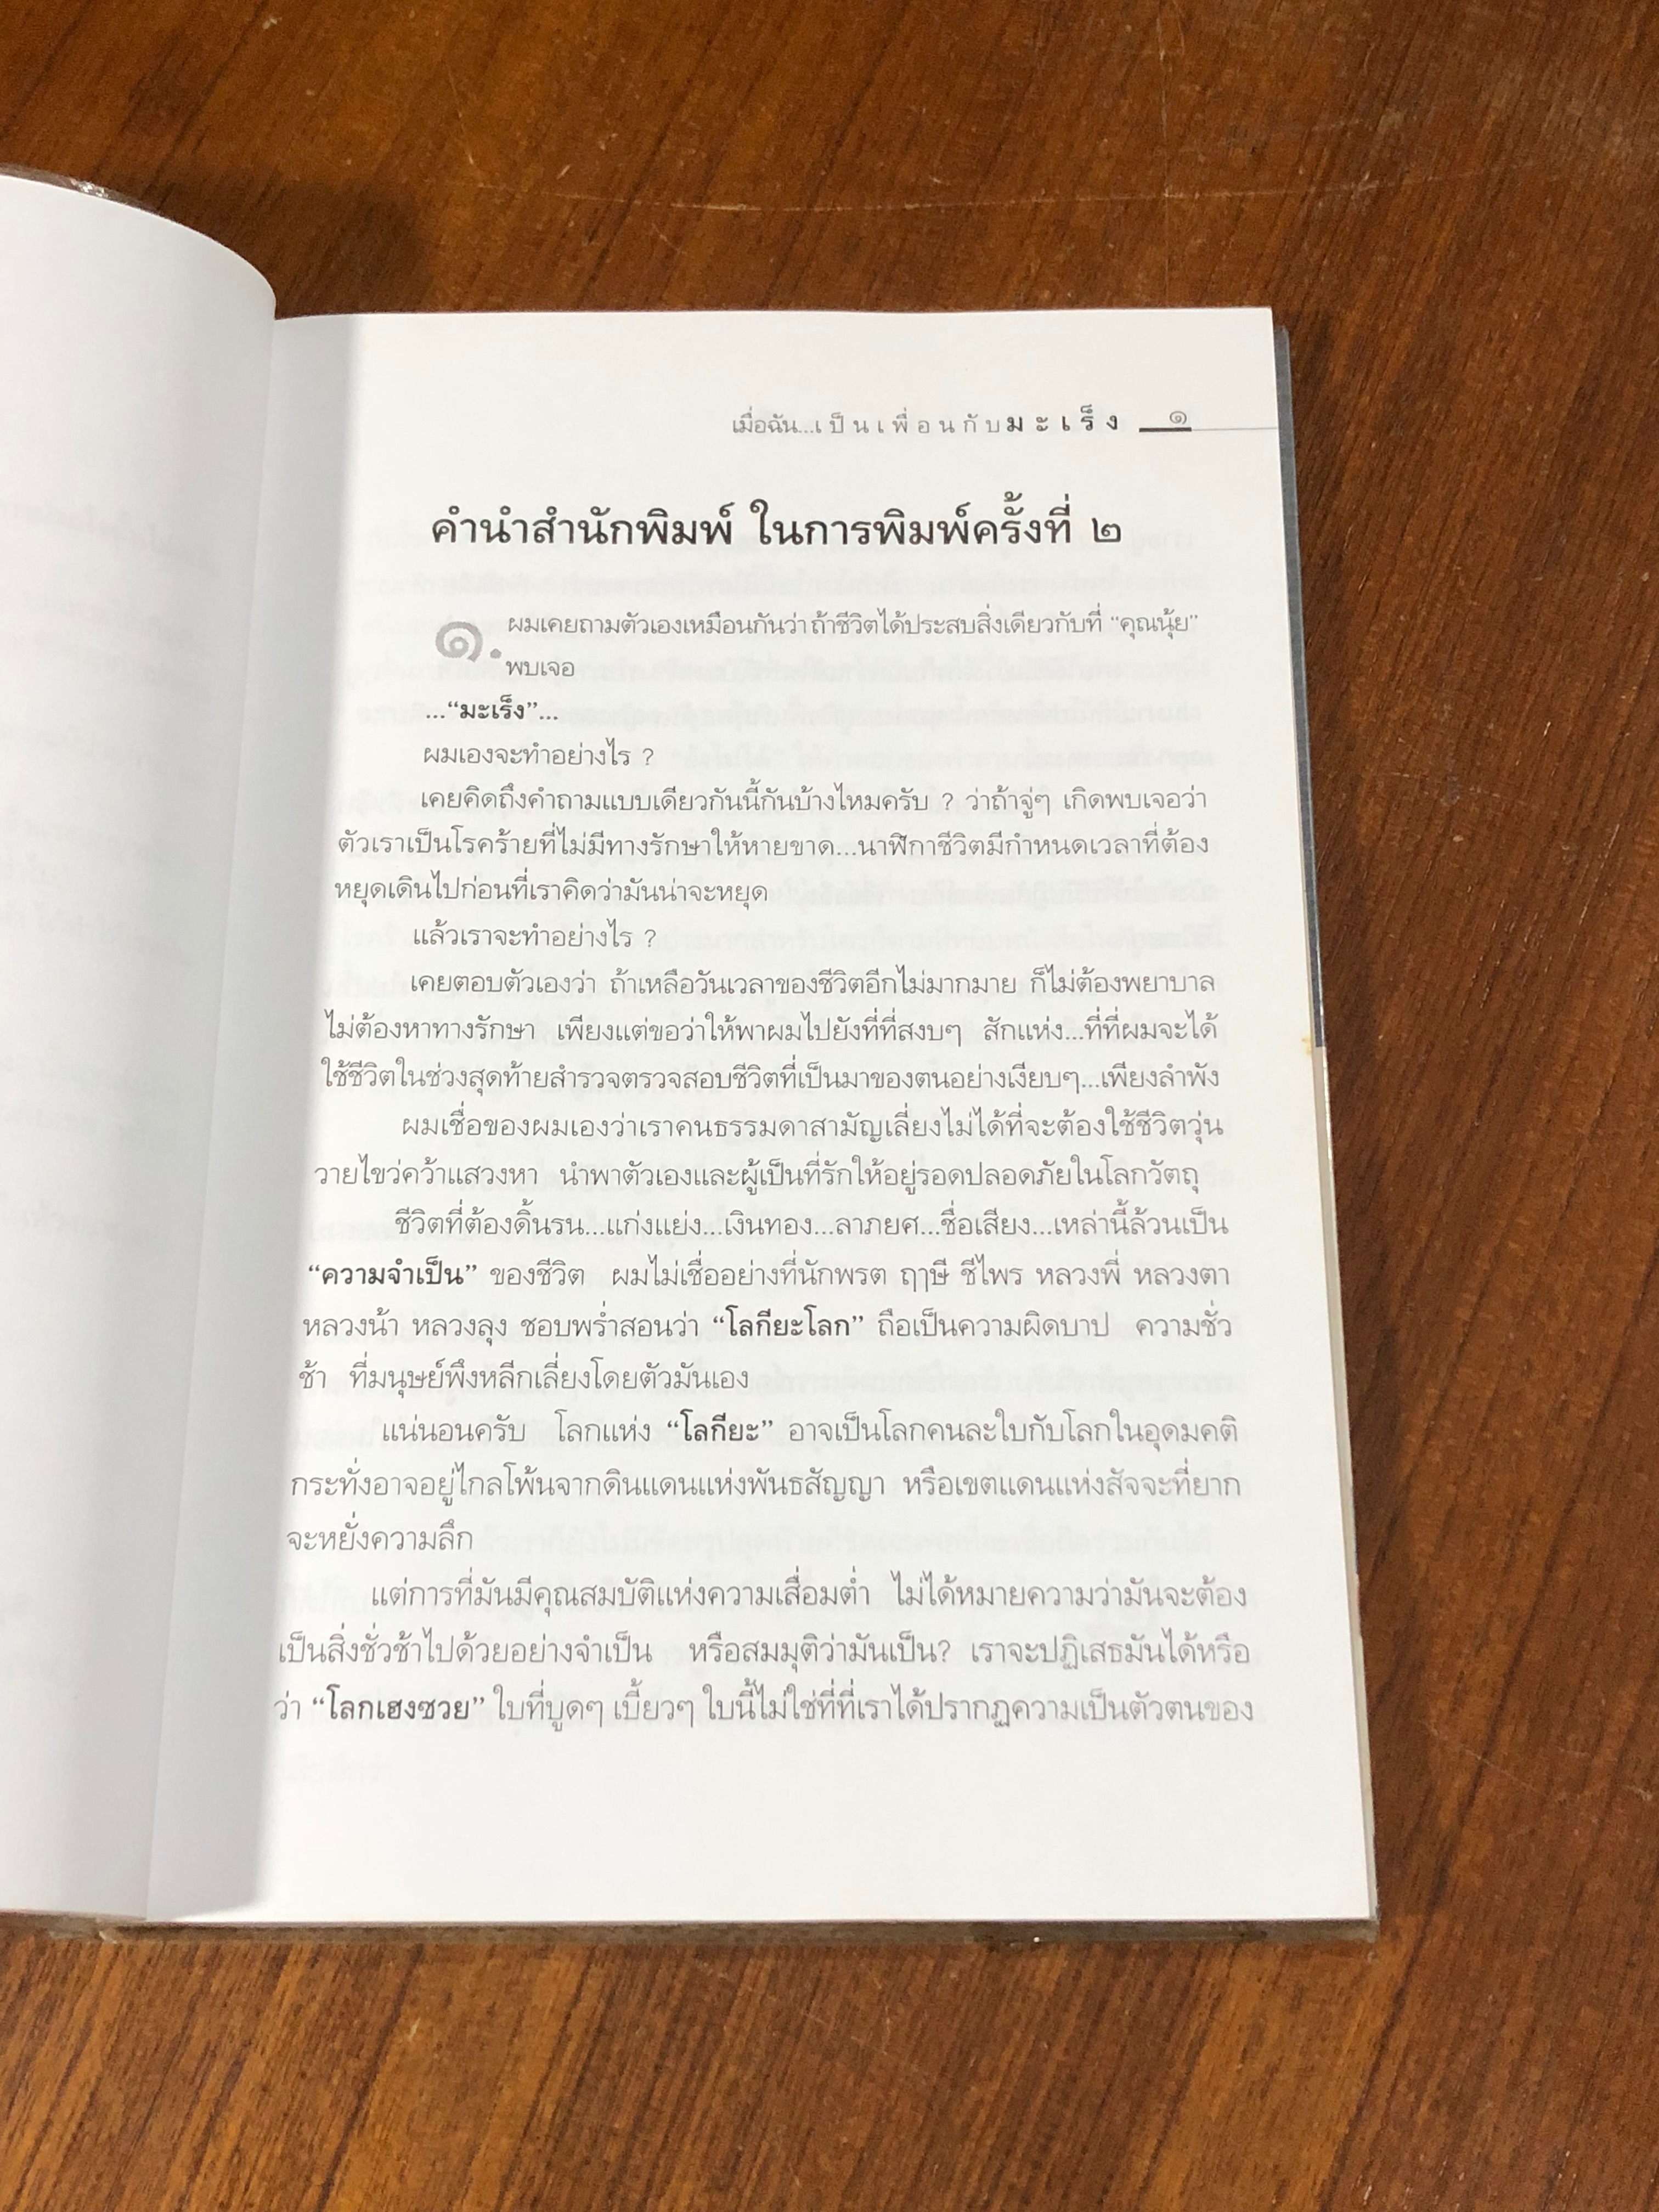 เมื่อฉัน...เป็นเพื่อนกับมะเร็ง ๑
คำนำสำนักพิมพ์ ในการพิมพ์ครั้งที่ ๒
๑. ผมเคยถามตัวเองเหมือนกันว่า ถ้าชีวิตได้ประสบสิ่งเดียวกับที่ “คุณนุ้ย”
พบเจอ
...“มะเร็ง”...
ผมเองจะทำอย่างไร ?
เคยคิดถึงคำถามแบบเดียวกันนี้กันบ้างไหมครับ ? ว่าถ้าจู่ๆ เกิดพบเจอว่า
ตัวเราเป็นโรคร้ายที่ไม่มีทางรักษาให้หายขาด...นาฬิกาชีวิตมีกำหนดเวลาที่ต้อง
หยุดเดินไปก่อนที่เราคิดว่ามันน่าจะหยุด
แล้วเราจะทำอย่างไร ?
เคยตอบตัวเองว่า ถ้าเหลือวันเวลาของชีวิตอีกไม่มากมาย ก็ไม่ต้องพยาบาล
ไม่ต้องหาทางรักษา เพียงแต่ขอว่าให้พาผมไปยังที่ที่สงบๆ สักแห่ง...ที่ที่ผมจะได้
ใช้ชีวิตในช่วงสุดท้ายสำรวจตรวจสอบชีวิตที่เป็นมาของตนอย่างเงียบๆ...เพียงลำพัง
ผมเชื่อของผมเองว่าเราคนธรรมดาสามัญเลี่ยงไม่ได้ที่จะต้องใช้ชีวิตวุ่น
วายไขว่คว้าแสวงหา นำพาตัวเองและผู้เป็นที่รักให้อยู่รอดปลอดภัยในโลกวัตถุ
ชีวิตที่ต้องดิ้นรน...แก่งแย่ง...เงินทอง...ลาภยศ...ชื่อเสียง...เหล่านี้ล้วนเป็น
“ความจำเป็น” ของชีวิต ผมไม่เชื่ออย่างที่นักพรต ฤๅษี ชีไพร หลวงพี่ หลวงตา
หลวงน้า หลวงลุง ชอบพร่ำสอนว่า “โลกียะโลก” ถือเป็นความผิดบาป ความชั่ว
ช้า ที่มนุษย์พึงหลีกเลี่ยงโดยตัวมันเอง
แน่นอนครับ โลกแห่ง “โลกียะ” อาจเป็นโลกคนละใบกับโลกในอุดมคติ
กระทั่งอาจอยู่ไกลโพ้นจากดินแดนแห่งพันธสัญญา หรือเขตแดนแห่งสัจจะที่ยาก
จะหยั่งความลึก
แต่การที่มันมีคุณสมบัติแห่งความเสื่อมต่ำ ไม่ได้หมายความว่ามันจะต้อง
เป็นสิ่งชั่วช้าไปด้วยอย่างจำเป็น หรือสมมุติว่ามันเป็น? เราจะปฏิเสธมันได้หรือ
ว่า “โลกเฮงซวย” ใบที่บูดๆ เบี้ยวๆ ใบนี้ไม่ใช่ที่ที่เราได้ปรากฏความเป็นตัวตนของ